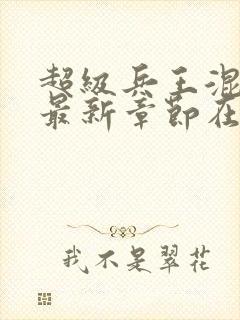 超级兵王混
最新章节在
我不是翠花